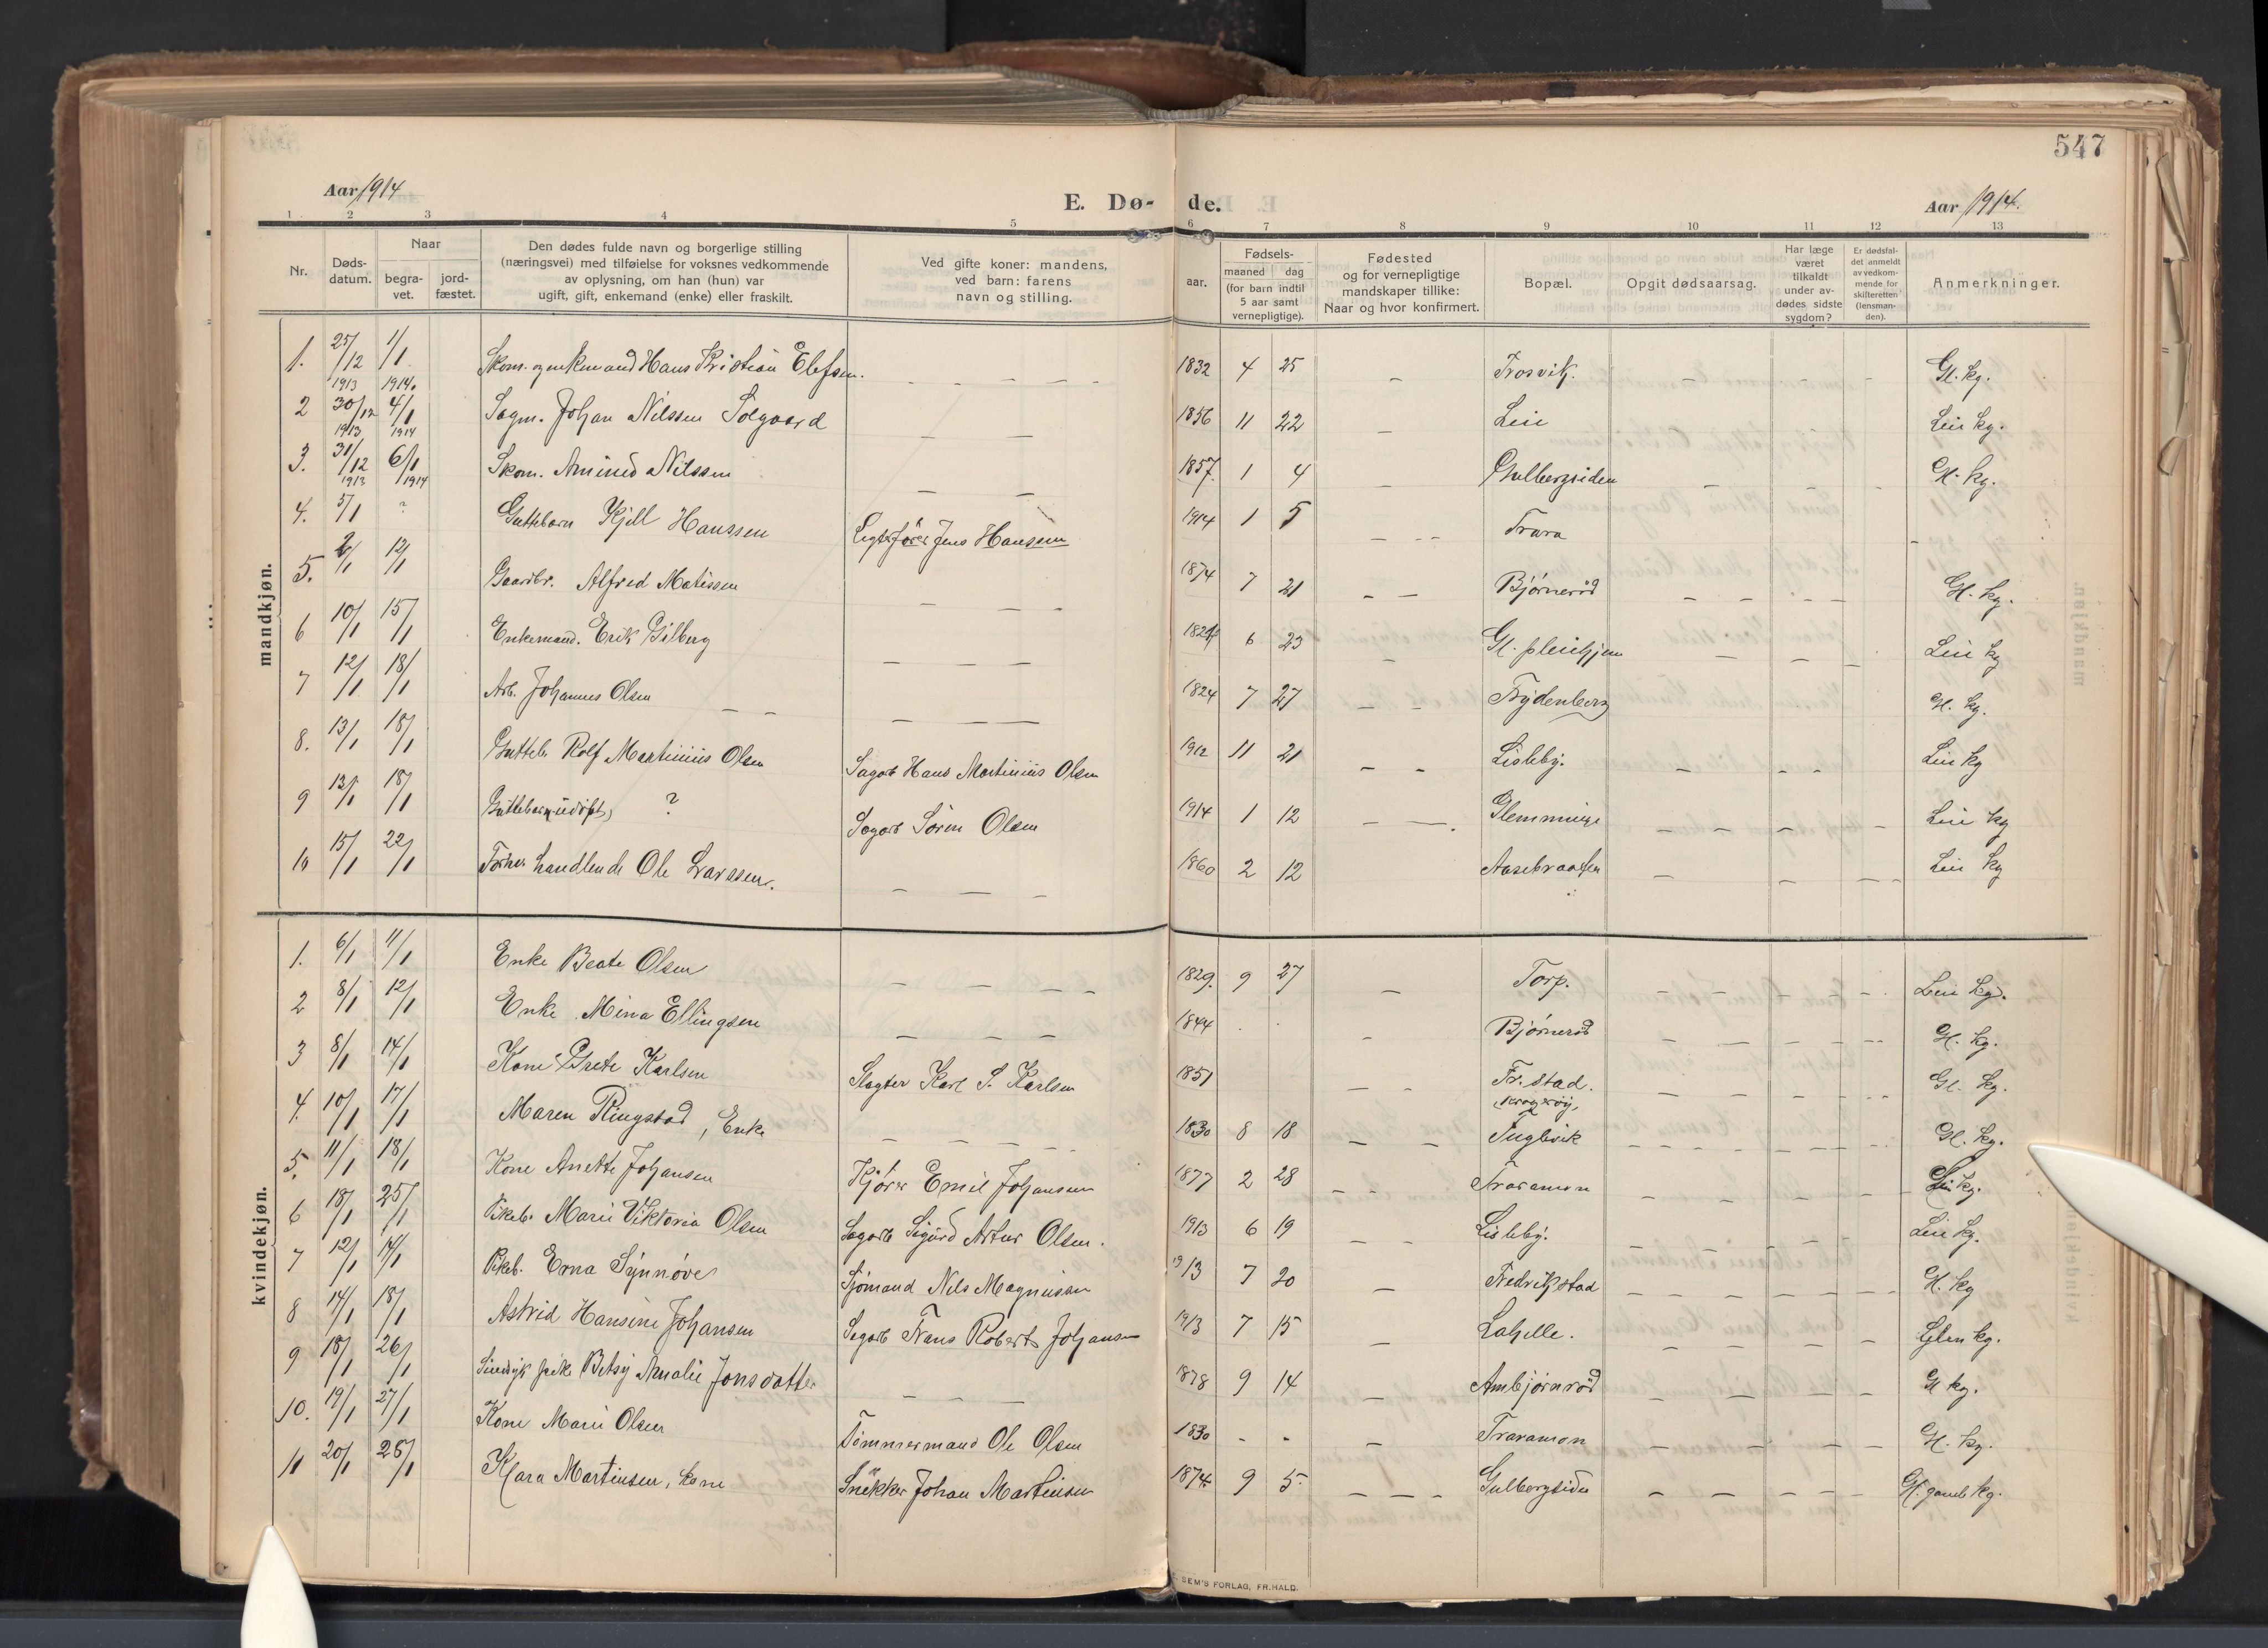 547
Aar 1914
E. Dø- de.
Aar 1914.
1 2 3 4 5 6 7 8 9 10 11 12 13
Nr.
Døds-
datum.
Naar
begra-
vet.
jord-
fæstet.
Den dødes fulde navn og borgerlige stilling
(næringsvei) med tilføielse for voksnes vedkommende
av oplysning, om han (hun) var
ugift, gift, enkemand (enke) eller fraskilt.
Ved gifte koner: mandens,
ved barn: farens
navn og stilling.
Fødsels-
aar.
maaned dag
(for barn indtil
5 aar samt
vernepligtige).
Fødested
og for vernepligtige
mandskaper tillike:
Naar og hvor konfirmert.
Bopæl.
Opgit dødsaarsag.
Har læge
været
tilkaldt
under av-
dødes sidste
sygdom?
Er dødsfal-
det anmeldt
av vedkom-
mende for
skifteretten
(lensman-
den).
Anmerkninger.
mandkjøn.
1. 25/12 1913 1/1 1914. Skom. og enkemand Hans Kristian Elefsen. – – – – 1832 4 25 – Trosvik. – – – Gl. kg.
2 30/12 1913 4/1 1914 Sagm. Johan Nilssen Solgaard – – 1856 11 22 – Lie Leie kg.
3. 31/12 1913 6/1 1914 Skom. Amined Nilssen – – 1857. 1 4 – Gulbergsiden – – – – Gl. kg.
4. 5/1 ? Guttebarn Kjell Hanssen Jens Hanssen 1914 1 5 – – – Trara –
5. 2/1 12/1 Gaardbr. Alfred Matissen – – – 1874 7 21 – – Bjørnerød – – – – Gl. kg.
6 10/1 15/1 Enkemand. Erik Gilberg – – – 6 23 – Gl. pleiehjem – – – Leie kg
7 12/1 18/1 Arb. Johannes Olsen – – – – – 1824 7 27 – – Frydenberg Gl. kg.
8. 13/1 18/1 Gutteb. Rolf Martinius Olsen Sagarb Hans Martinius Olsen 1912 11 21 – – Lisleby. – – – Leie kg
9 13/1 18/1 Guttebarn (udøpt) ? Sagarb Søren Olsen 1914 1 12 – –. Glemminge – – – – Leie kg
10 15/1 22/1 Forhen handlende Ole Larssen. – – – 1860 2 12 Aasebraaten – – – – Leie kg
kvindekjøn.
1. 6/1 11/1 Enke Beate Olsen – – – – 1829. 9 27 – Torp. – – – – Leie kg.
2 8/1 12/1 Enke Mina Ellingsen – – – 1844 . . – Bjørnerød – – – – Gl. kg.
3 8/1 14/1 Kone Grete Karlsen Slagter Karl S. Karlsen 1851 – – Fr.stad. – – – – Gl. kg.
4. 10/1 17/1 Maren Ringstad, Enke – – – – 1830 8 18 – – Kragerøy, Fuglevik – – – – Gl. kg.
5. 11/1 18/1 Kone Anette Johansen Kjører Emil Johansen 1877 2 28 – – Traramon – – – – Leie kg.
6 18/1 25/1 Pikeb. Marie Viktoria Olsen Sagarb Sigurd Artur Olsen. 1913 6 19 – – Lisleby. – – – – Leie kg.
7 12/1 14/1 Pikeb. Erna Synnøve Sjømand Nils Magnussen 1913 7 20 – Fredrikstad – – – – Gl. kg
8 14/1 18/1 Astrid Hansine Johansen Sagarb Frans Robert Johansen 1913 7 15 – Lahelle. – – – – Glem kg.
9 18/1 26/1 Sindsyk pike Betsy Amalie Jonsdatter – – – 1878 9 14 – Ambjørnrød – – – – Gl kg.
10. 19/1 27/1 Kone Marie Olsen Tømmermand Ole Olsen 1830 - - – Traramon – – – – Gl. kg.
11 20/1 26/1 Klara Martinsen, kone Snekker Johan Martinsen 1874. 9 5. – – – Gulbergsiden – – – – Gl. gamle kg.
SEM'S FORLAG, FR.HALD.